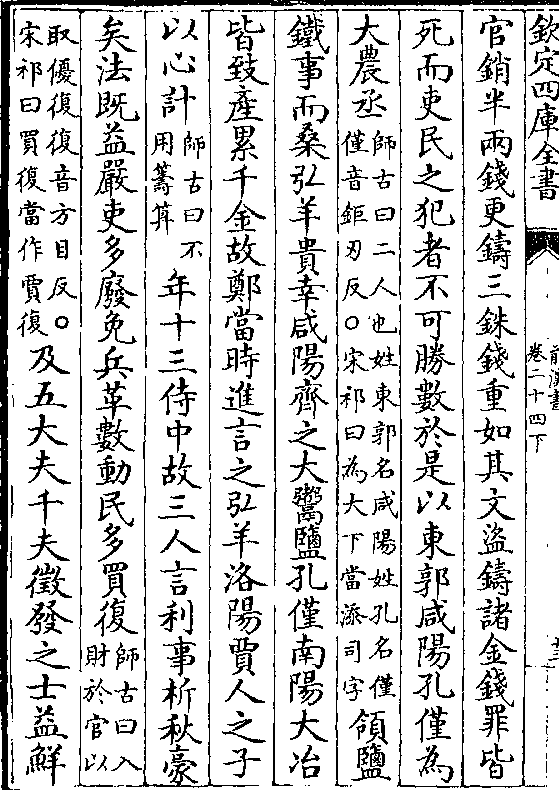 欽定四庫全書
前漢書
卷二十四下
官銷半兩錢更鑄三銖錢重如其文盜鑄諸金錢罪皆
死而吏民之犯者不可勝數於是以東郭咸陽孔僅為
大農丞師古曰二人也姓東郭名咸陽姓孔名僅
僅音鉅刃反○宋祁曰為大下當添司字領鹽
鐵事而桑弘羊貴幸咸陽齊之大鬻鹽孔僅南陽大冶
皆致產累千金故鄭當時進言之弘羊洛陽賈人之子
以心計師古曰不
用籌筭年十三侍中故三人言利事析秋豪
矣法既益嚴吏多廢免兵革數動民多買復師古曰入
財於官以
取優復復音方目反○
宋祁曰買復當作賈復及五大夫千夫徵發之士益鮮